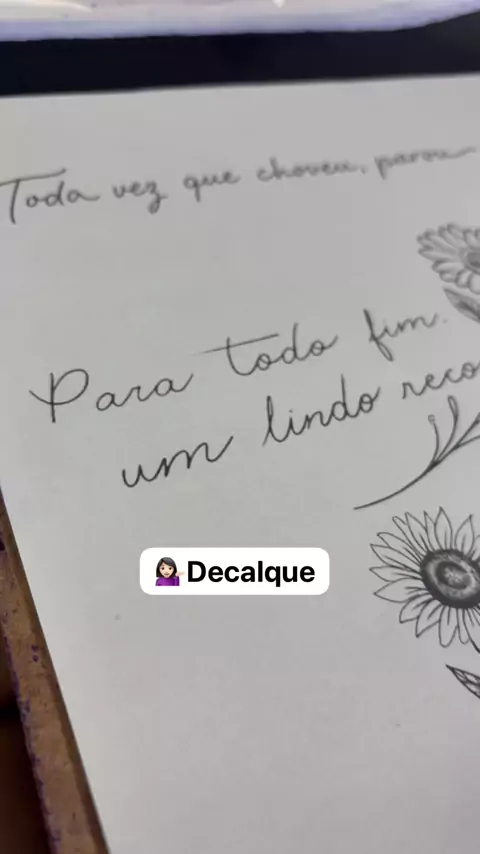 Toda vez que choveu, parou
Para todo fim.
um lindo reco
💁🏻‍♀️Decalque